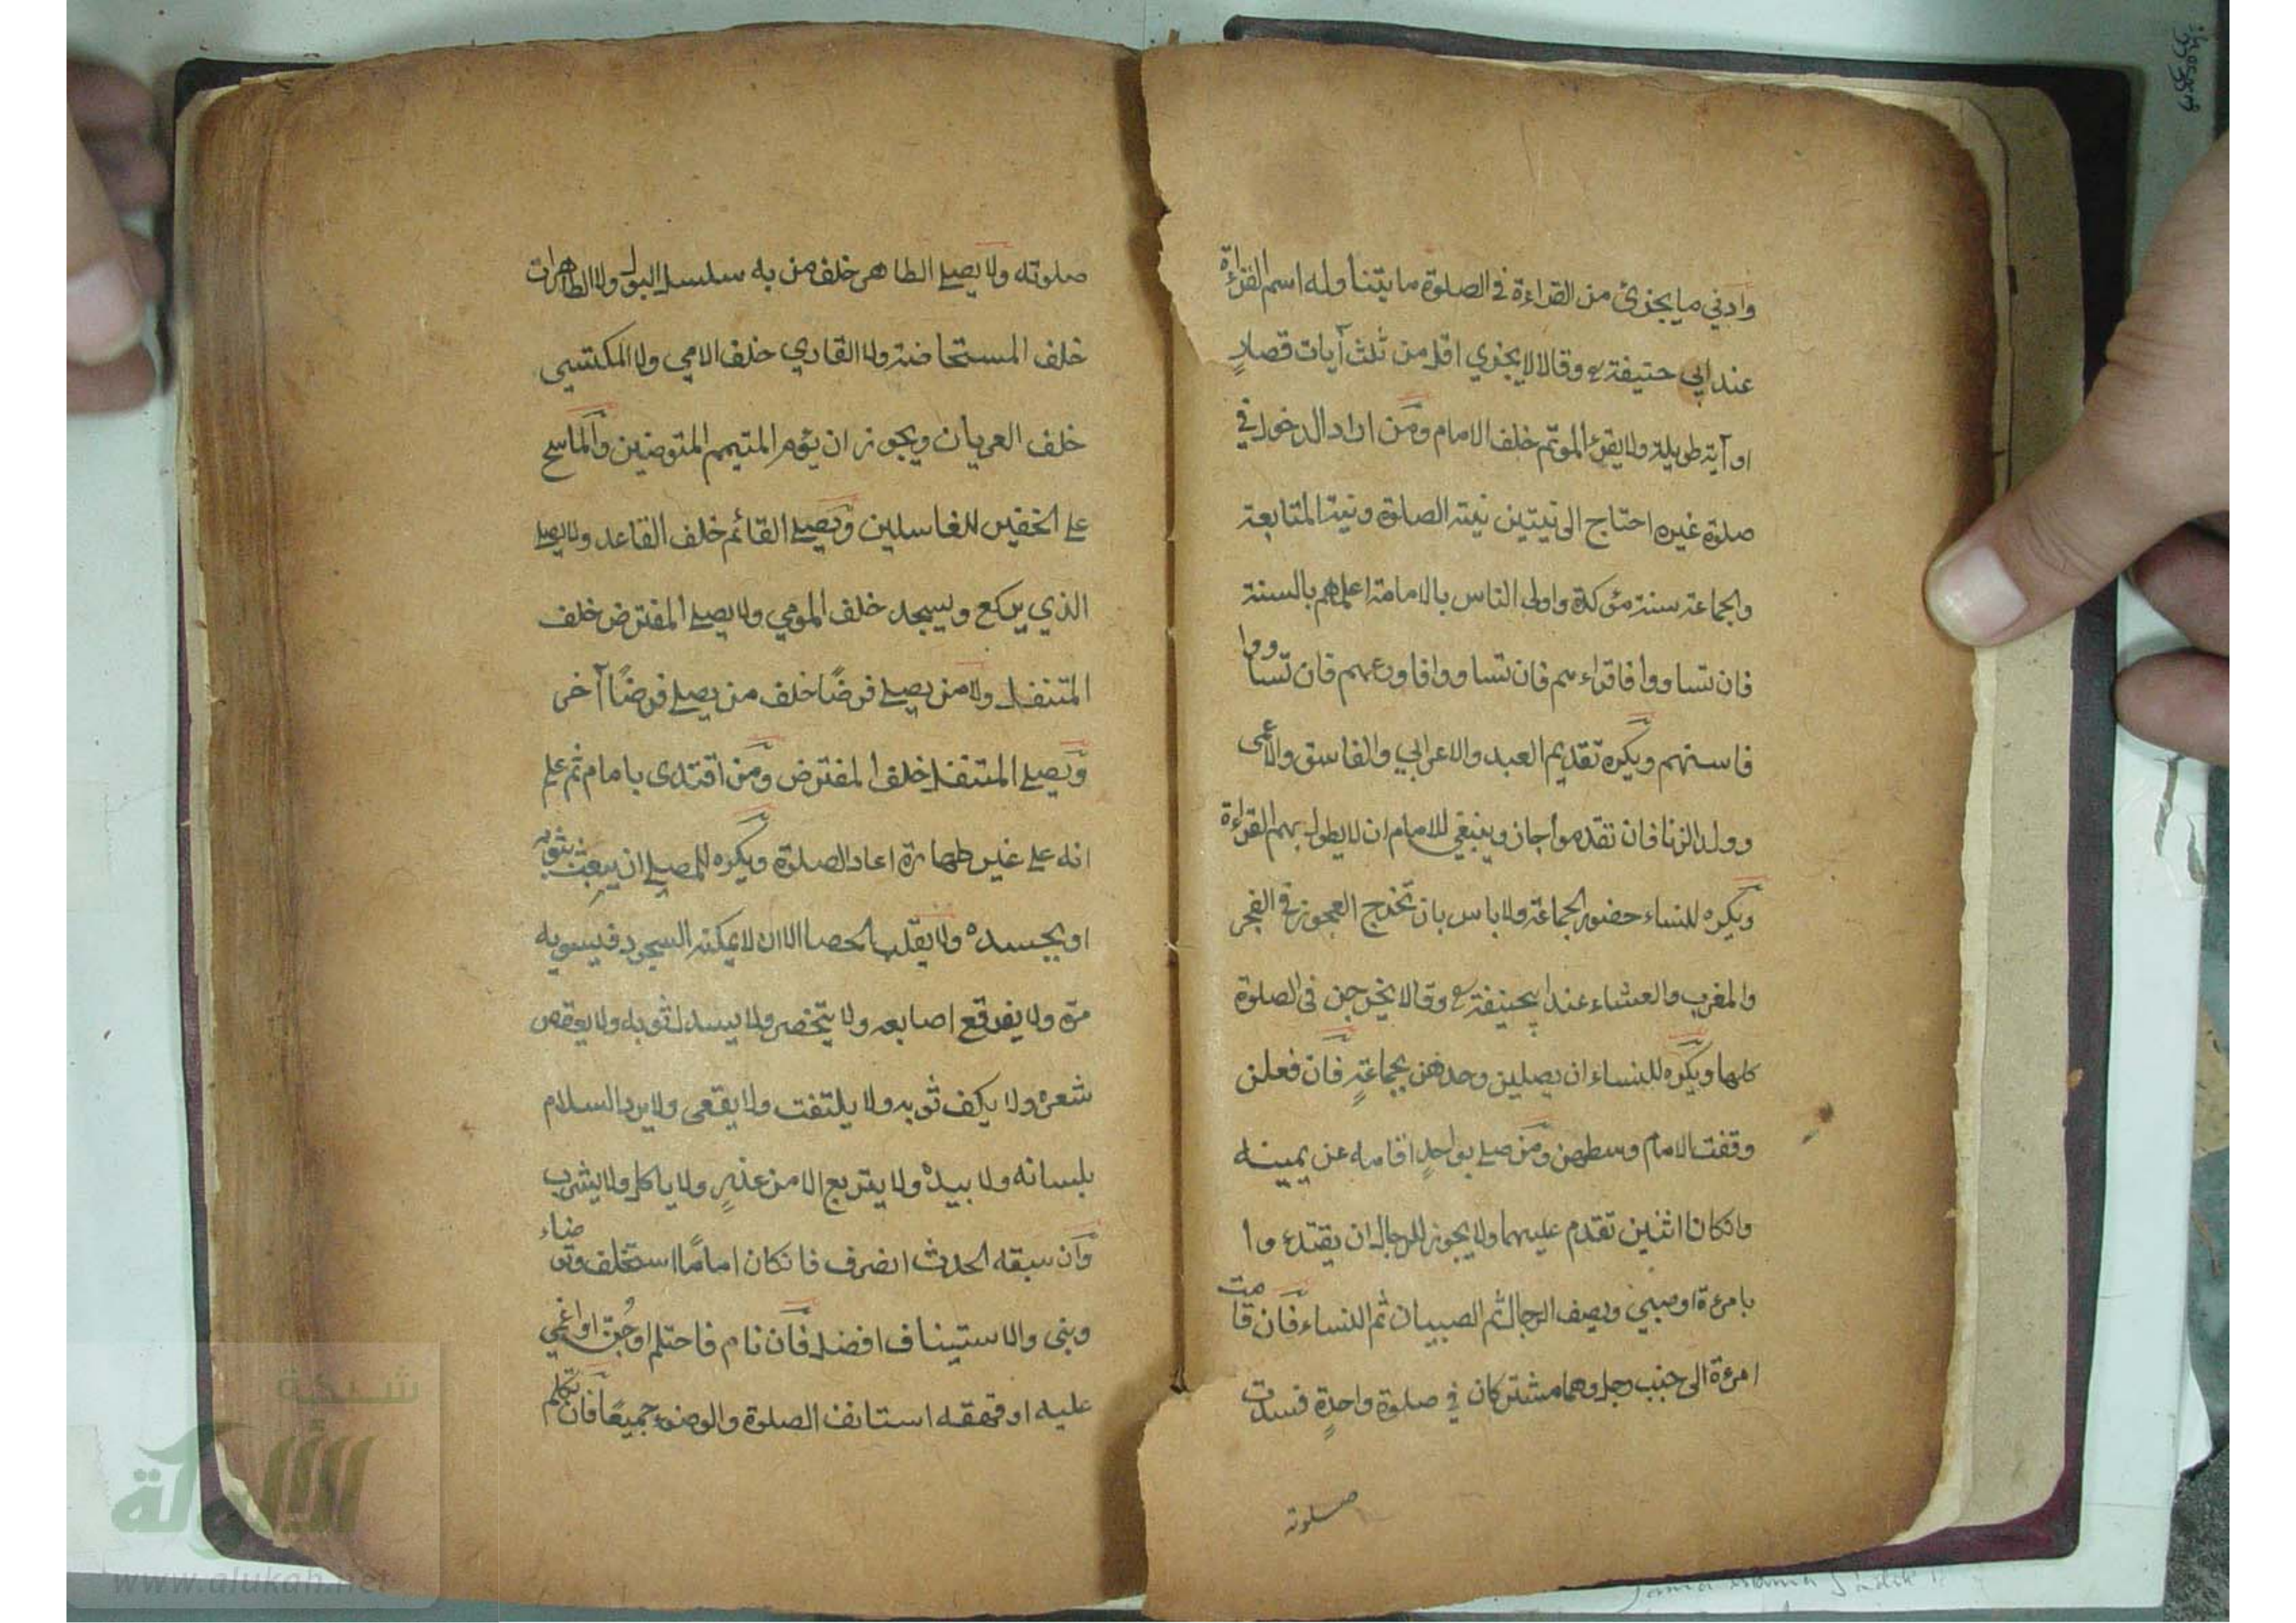 وادني ما يجزئ من القراءة في الصلوة ما يتناوله اسم القراءة
عند ابي حنيفة رح وقالا لا يجزي اقل من ثلث آيات قصارٍ
او آية طويلة ولا يقرئ الموتم خلف الامام ومن اراد الدخول في
صلوة غيره احتاج الى نيتين نية الصلوة ونية المتابعة
والجماعة سنة مؤكدة واولى الناس بالامامة اعلمهم بالسنة
فان تساووا فاقراءهم فان تساووا فاورعهم فان تساووا
فاسنهم ويكره تقديم العبد والاعرابي والفاسق والاعمى
وولد الزنا فان تقدموا جاز وينبغي للامام ان لا يطول بهم القراءة
ويكره للنساء حضور الجماعة ولا باس بان تخرج العجوز في الفجر
والمغرب والعشاء عند ابيحنيفة رح وقالا يخرجن في الصلوة
كلها ويكره للنساء ان يصلين وحدهن بجماعةٍ فان فعلن
وقفت الامام وسطهن ومن صلى بواحدٍ اقامه عن يمينه
وانكان اثنين تقدم عليهما ولا يجوز للرجال ان يقتدءوا
بامرءة او صبيي ويصف الرجال ثم الصبيان ثم النساء فان قامت
امرءة الى جنب رجل وهما مشتركان في صلوة واحدةٍ فسدت
صلوته
صلوته ولا يصلى الطاهر خلف من به سلسل البول ولا الطاهرات
خلف المستحاضة ولا القاري خلف الامي ولا المكتسي
خلف العريان ويجوز ان يؤم المتيمم المتوضين والماسح
على الخفين للغاسلين ويصلى القائم خلف القاعد ولا يصلى
الذي يركع ويسجد خلف المومي ولا يصلى المفترض خلف
المتنفل ولا من يصلى فرضًا خلف من يصلى فرضًا آخر
ويصلى المتنفل خلف المفترض ومن اقتدى بامام ثم علم
انه على غير طهارة اعاد الصلوة ويكره للمصلى ان يعبث بثوبه
او بجسده ولا يقلب الحصا الا ان لا يمكنه السجود فيسويه
مرة ولا يفرقع اصابعه ولا يتخصر ولا يسدل ثوبه ولا يعقص
شعره ولا يكف ثوبه ولا يلتفت ولا يقعى ولا يرد السلام
بلسانه ولا بيده ولا يتربع الا من عذرٍ ولا ياكل ولا يشرب
وان سبقه الحدث انصرف فانكان امامًا استخلف وتوضاء
وبنى والاستيناف افضل فان نام فاحتلم او جُن او اغمي
عليه او قهقه استانف الصلوة والوضوء جميعًا فان تكلم
شبكة
الألوكة
www.alukah.net